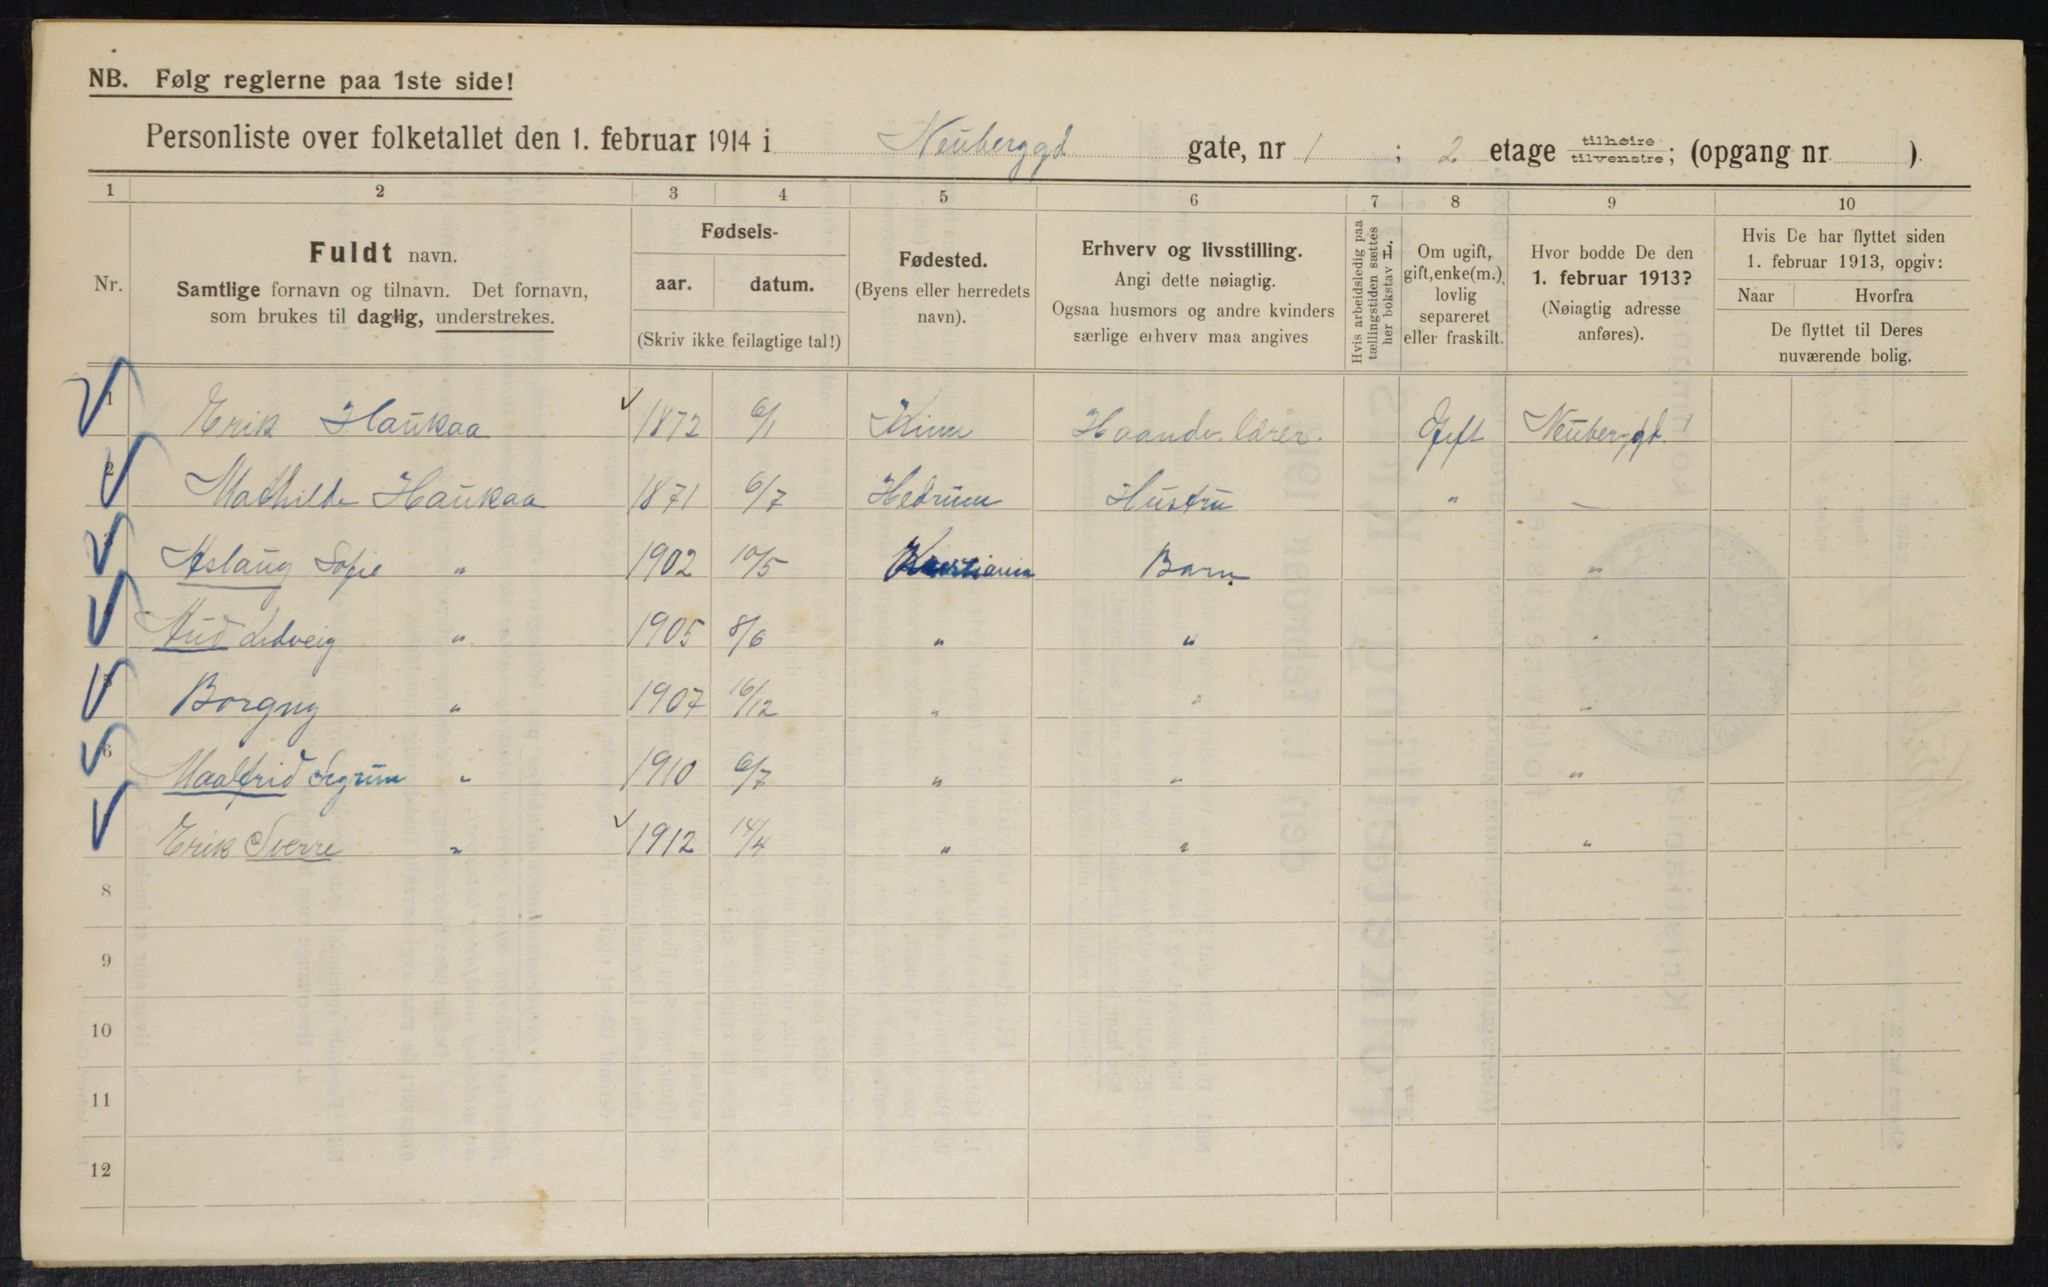 NB. Følg reglerne paa 1ste side!
Personliste over folketallet den 1. februar 1914 i Neuberggd gate, nr 1 ; 2 etage tilhøire tilvenstre; (opgang nr ).
1 2 3 4 5 6 7 8 9 10
Nr.
Fuldt navn.
Samtlige fornavn og tilnavn. Det fornavn,
som brukes til daglig, understrekes.
Fødsels-
aar. datum.
(Skriv ikke feilagtige tal!)
Fødested.
(Byens eller herredets
navn).
Erhverv og livsstilling.
Angi dette nøiagtig.
Ogsaa husmors og andre kvinders
særlige erhverv maa angives
Hvis arbeidsledig paa
tællingstiden sættes
her bokstav L.
Om ugift,
gift, enke(m.),
lovlig
separeret
eller fraskilt.
Hvor bodde De den
1. februar 1913?
(Nøiagtig adresse
anføres).
Hvis De har flyttet siden
1. februar 1913, opgiv:
Naar Hvorfra
De flyttet til Deres
nuværende bolig.
1 Erik Haukaa 1872 6/1 Kinn Haandv. lærer. Gift Neuberggd. 1
2 Mathilde Haukaa 1871 6/7 Hedrum Hustru " —
3 Aslaug Sofie " 1902 10/5 Kristiania Barn "
Aud " 1905 8/6 " " "
5 Borgny " 1907 16/12 " " "
6 Maalfrid Sigrun " 1910 6/7 " " "
Erik Sverre " 1912 14/4 " " "
8
9
10
11
12